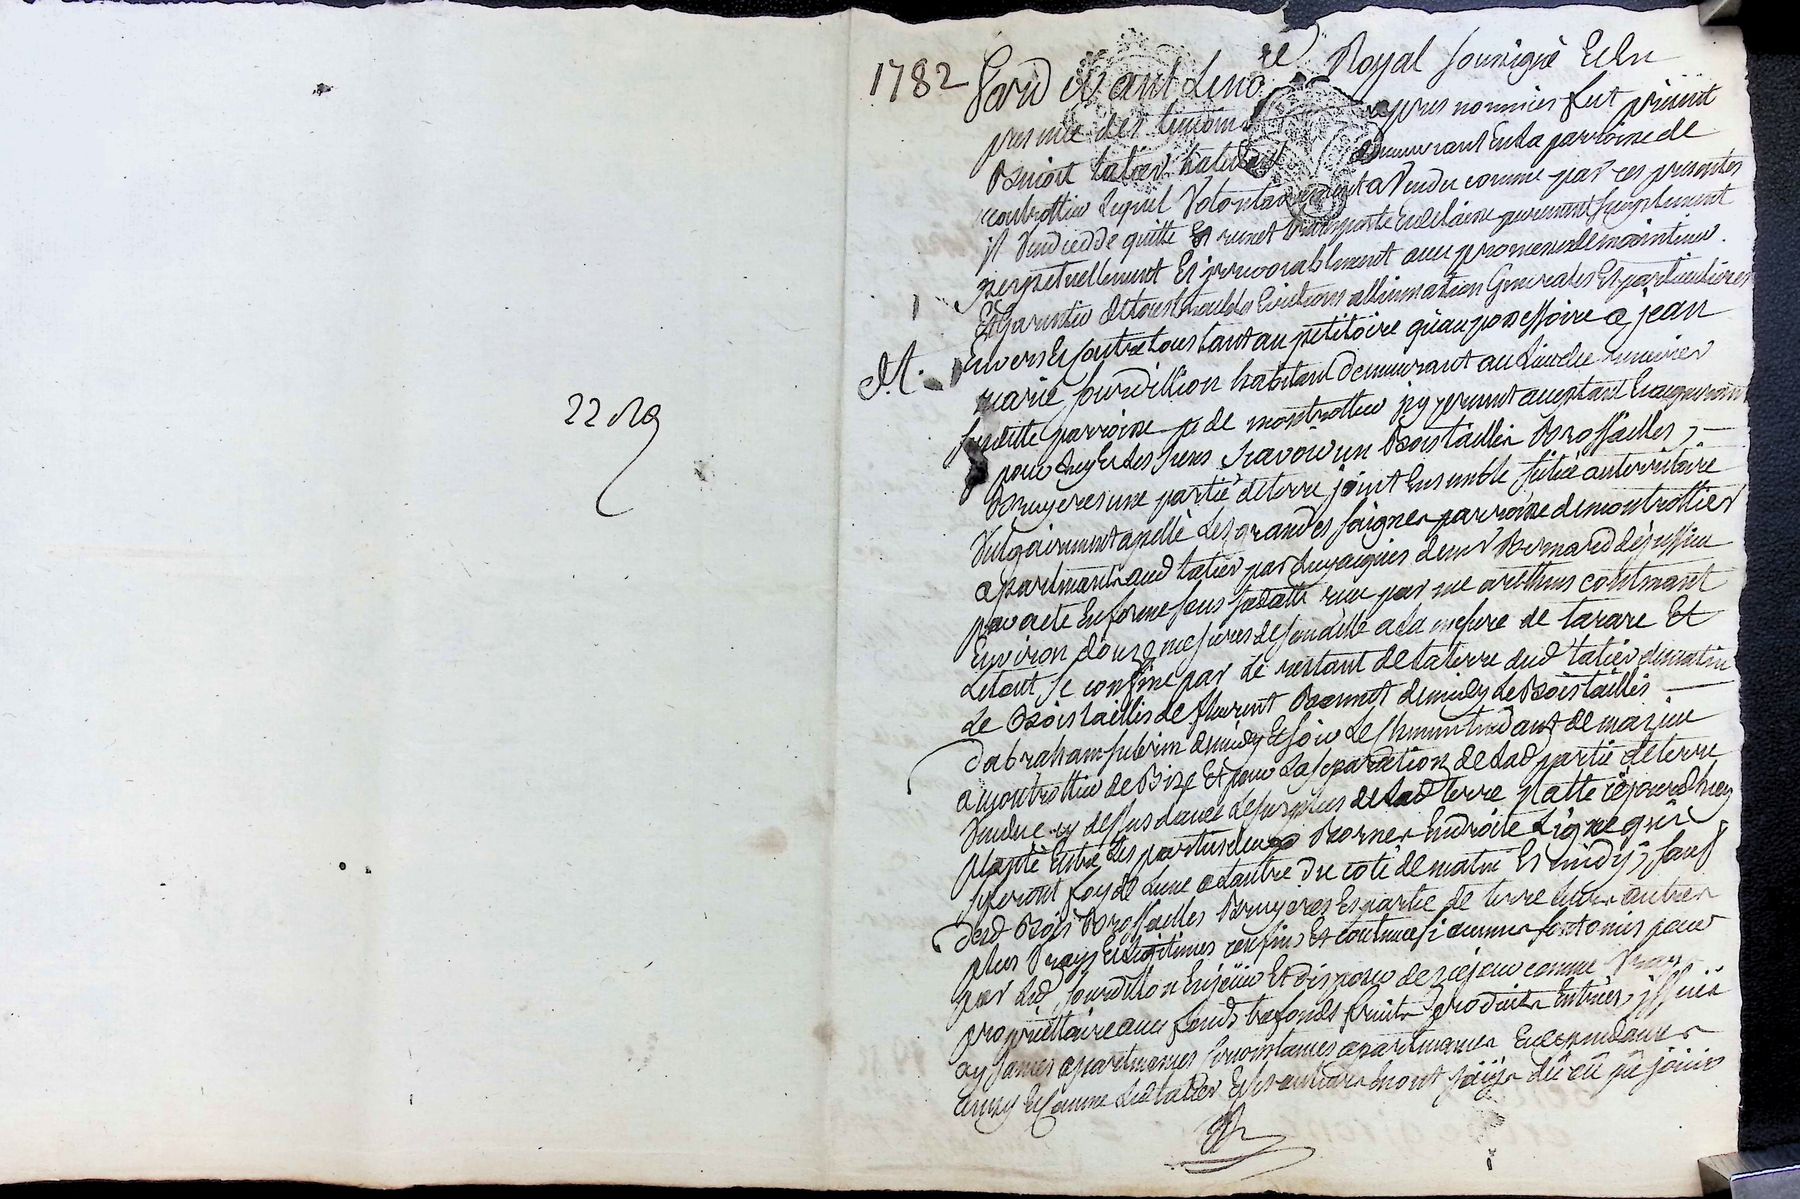 22 9
1782 Pard devant Le no.re Royal sousigné Et En
presence des temoins apres nommés fut présent
Benoit tatier habitant demeurant En La parroisse de
montrottier Lequel Volontairement a Vendu comme par ces presentes
jl Vend cedde quitte Et remet transporte Et delaisse purement simplement
perpetuellement Et jrrevocablement avec promesse de maintenir
Et Garentir de tous troubles Evictions allienation Generales Et particulieres
Envers Et contre tous tant au petitoire qu'au possessoire a jean
marie jourdillion habitant demeurant au Lieu du
susditte parroisse de montrottier jcy present acceptant Et aquereur
pour luy Et Les siens Scavoir un Bois taillis Brossailles
Bruyeres une partie de terre joint Ensemble situé au territoire
Vulgairement apellé Les grandes saignes parroisse de montrottier
apartenants aud tatier par
par acte En forme sous sa datte reçu par me contenant
Environ douze mesures de semaille a la mesure de tarare Et
Le tout se confine par Le restant de La terre dud tatier de matin
Le Bois taillis de fleurent Bonnet de midy Le Bois taillis
d'abraham de midy Et soir Le Chemin tendant de
a montrottier de Bize Et pour La separation de Lad partie de terre
Vendue cy dessus davec Le surplus de Lad terre jl a été cejourdhuy
planté Entre Les parties deux Bornes En droite Ligne qui
feront foy de Lune a Lautre du coté de matin Et midy, sauf
dud Bois Brossailles Bruyeres Et partie de terre Leurs autres
plus Vrays Et Legitimes confins Et contenues si aucunes sont omis pour
par Led jourdillon En jouir Et disposer de cejour comme Vray
proprietaire avec fonds trefonds fruits produits Entrées jssues
aysances apartenances Circonstances apartenances Et dependances
Et comme Led tatier Et ses auteurs En ont jouy du ou pu jouir